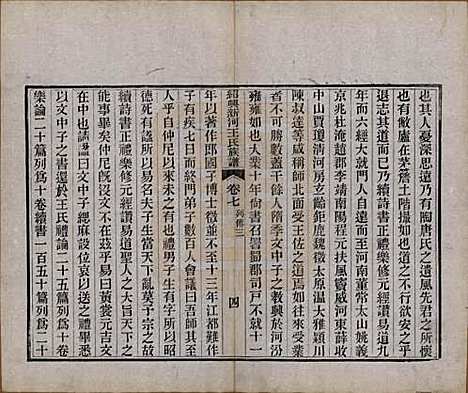 也其人憂深思遠乃有陶唐氏之遺風先君之所懷
也有敝廬在茅簷土階撮如也道之不行欲安之乎
退志其道而已乃續詩書正禮樂修元經讚易道九
年而六經大就門人自遠而至河南董常太山姚義
京兆杜淹趙郡李靖南陽程元扶風竇威河東薛收
中山賈瓊清河房玄齡鉅鹿魏徵太原溫大雅潁川
陳叔達等咸稱師北面受王佐之道焉
者不可勝數蓋千餘人隋季文中子之教興於河汾
雍雍如也大業十年尚書召署蜀郡司戶不就十一
年以著作郎國子博士徵並不至十三年江都難作
紹興新河王氏族譜
卷七
列傳二
四
有疾七日而終門弟子數百人會議曰吾師其至
人乎自仲尼以來未之有也禮男子生有字所以昭
德死有諡所以易名夫子生當天下亂莫予宗之故
續詩書正禮樂修元經讚易道聖人之大旨天下之
能事畢矣仲尼既沒文不在茲乎易曰黃裳元吉文
在中也請諡曰文中子絲麻設位哀以送之禮畢悉
以文中子之書還於王氏禮論二十五篇列爲十卷
樂論二十篇列爲十卷續書一百五十篇列爲二十